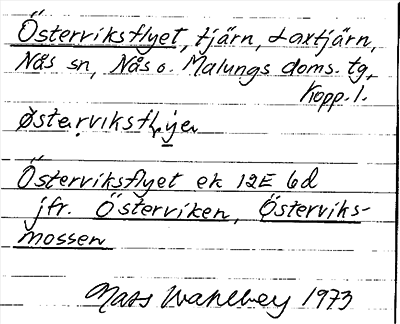 Österviksflyet, tjärn, Laxtjärn,
Nås sn, Nås o. Malungs doms. tg,
Kopp. l.
Österviksflyet ek 12E 6d
jfr. Österviken, Österviks-
mossen
Mats Wahlberg 1973